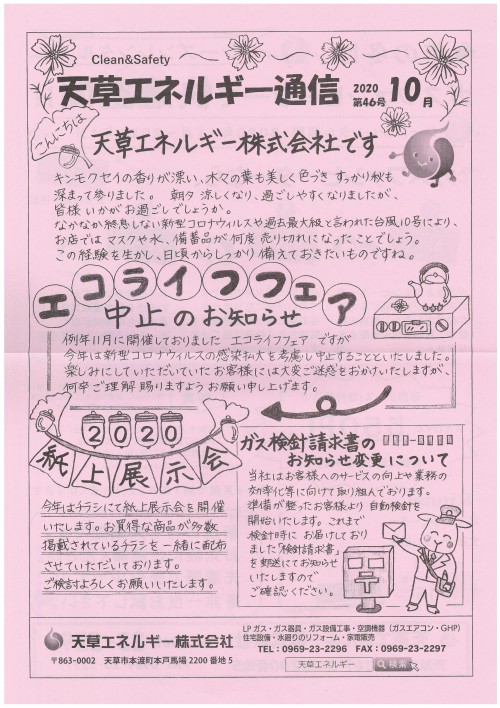 Clean&Safety
天草エネルギー通信 2020 第46号 10月
こんにちは
天草エネルギー株式会社です
キンモクセイの香りが漂い、木々の葉も美しく色づき すっかり秋も
深まって参りました。 朝夕 涼しくなり、過ごしやすくなりましたが、
皆様 いかがお過ごしでしょうか。
なかなか終息しない新型コロナウィルスや過去最大級と言われた台風10号により、
お店では マスクや水、備蓄品が 何度 売り切れになったことでしょう。
この経験を生かし、日頃からしっかり 備えておきたいものですね。
エコライフフェア
中止のお知らせ
例年11月に開催しておりました エコライフフェア ですが
今年は新型コロナウィルスの感染拡大を考慮し中止することといたしました。
楽しみにしていただいていたお客様には大変ご迷惑をおかけいたしますが、
何卒ご理解 賜りますよう お願い申し上げます。
2020
紙上展示会
今年はチラシにて紙上展示会を開催
いたします。お買得な商品が多数
掲載されているチラシを一緒に配布
させていただいております。
ご検討よろしくお願いいたします。
ガス検針請求書の
お知らせ変更について
当社はお客様へのサービスの向上や業務の
効率化等に向けて取り組んでおります。
準備が整ったお客様より 自動検針を
開始いたします。これまで
検針時に お届けしており
ました「検針請求書」
を郵送にてお知らせ
いたしますので
ご確認ください。
〒
天草エネルギー株式会社
〒863-0002 天草市本渡町本戸馬場 2200 番地 5
LP ガス・ガス器具・ガス設備工事・空調機器（ガスエアコン・GHP）
住宅設備・水廻りのリフォーム・家電販売
TEL：0969-23-2296 FAX：0969-23-2297
天草エネルギー 検索